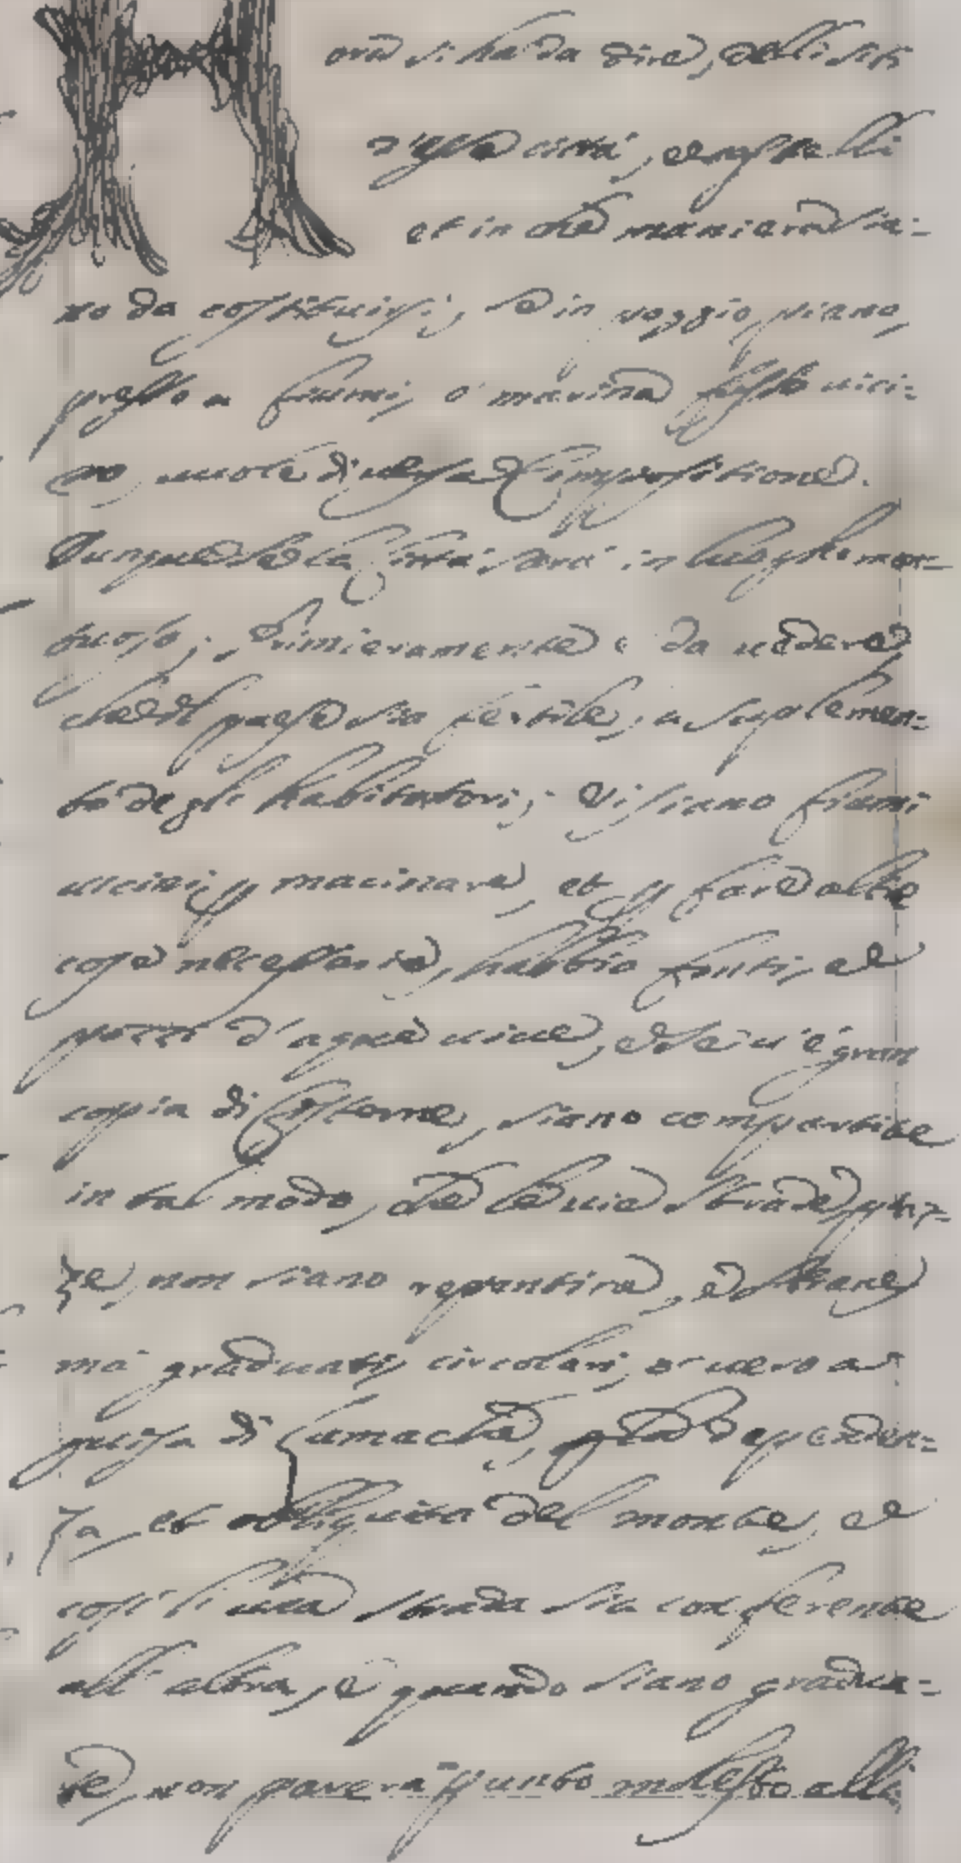 Hora si ha da dire, delli siti
d'essa città, e castelli
et in che maniera sia-
no da costituirsi; se in poggio, piano,
presso a fiumi, o' marina fusse uici-
no, uuole diuersa Compositione.
Dunque se la Città sarà in luogho mon-
tuoso; Primieramente è da uedere
che il paese sia fertile, a suplemen-
to degli habitatori; Vi siano fiumi
uicini p macinare, et p fare altre
cose necessarie, habbia fonti, e
pozzi d'aque uiue, e se u'è gran
copia di Cisterne, siano compartite
in tal modo, che le uie strade, piaz-
ze, non siano repentine, e strane
ma' graduati, circolari, o' uero a
guisa di Lumacha, dependen-
za, et obliquità del monte, e
così l'una strada sia conferente
all'altra, e quando siano gradua-
te, non parerà punto molesto alli